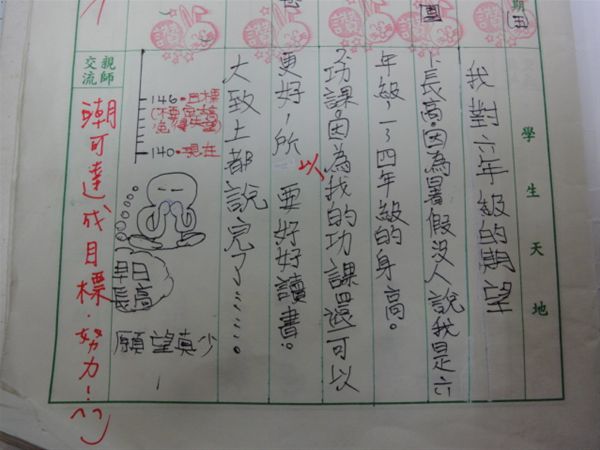 學生天地
我對六年級的期望
1.長高。因為暑假沒人說我是六
年級,四年級的身高。
2.功課。因為我的功課還可以
更好,所以要好好讀書。
大致上都說完了……。
親師交流
146.目標
失望)
140.現在
早日長高
願望真少
可達成目標.努力!^^